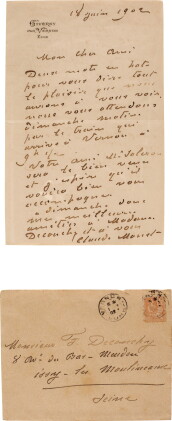 Giverny
par Vernon
Eure
18 juin 1902
Mon cher ami
Deux mots en hâte
pour vous dire tout
le plaisir que nous
aurons à vous voir,
nous vous attendons
dimanche matin
par le train qui
arrive à Vernon à
9h
Votre ami Mr
sera le bien venu
et j'espère qu'il
voudra bien vous
accompagner
à dimanche donc
mes meilleures
amitiés à Madame
Deconchy et à vous
Claude Monet
Monsieur F. Deconchy
8 des Bas-Meudon
Issy-les Moulineaux
Seine